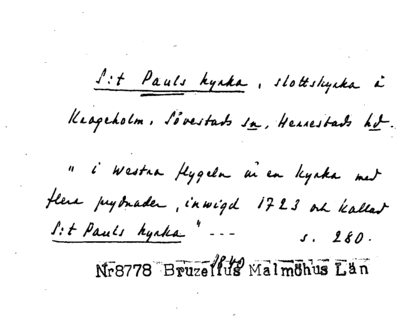 S:t Pauls kyrka, slottskyrka å
Krageholm, Sövestads sn, Herrestads hd.
"i westra flygeln är en kyrka med
flera prydnader, inwigd 1723 och kallad
S:t Pauls kyrka" --- s. 280.
1840
Nr8778 Bruzelius Malmöhus Län